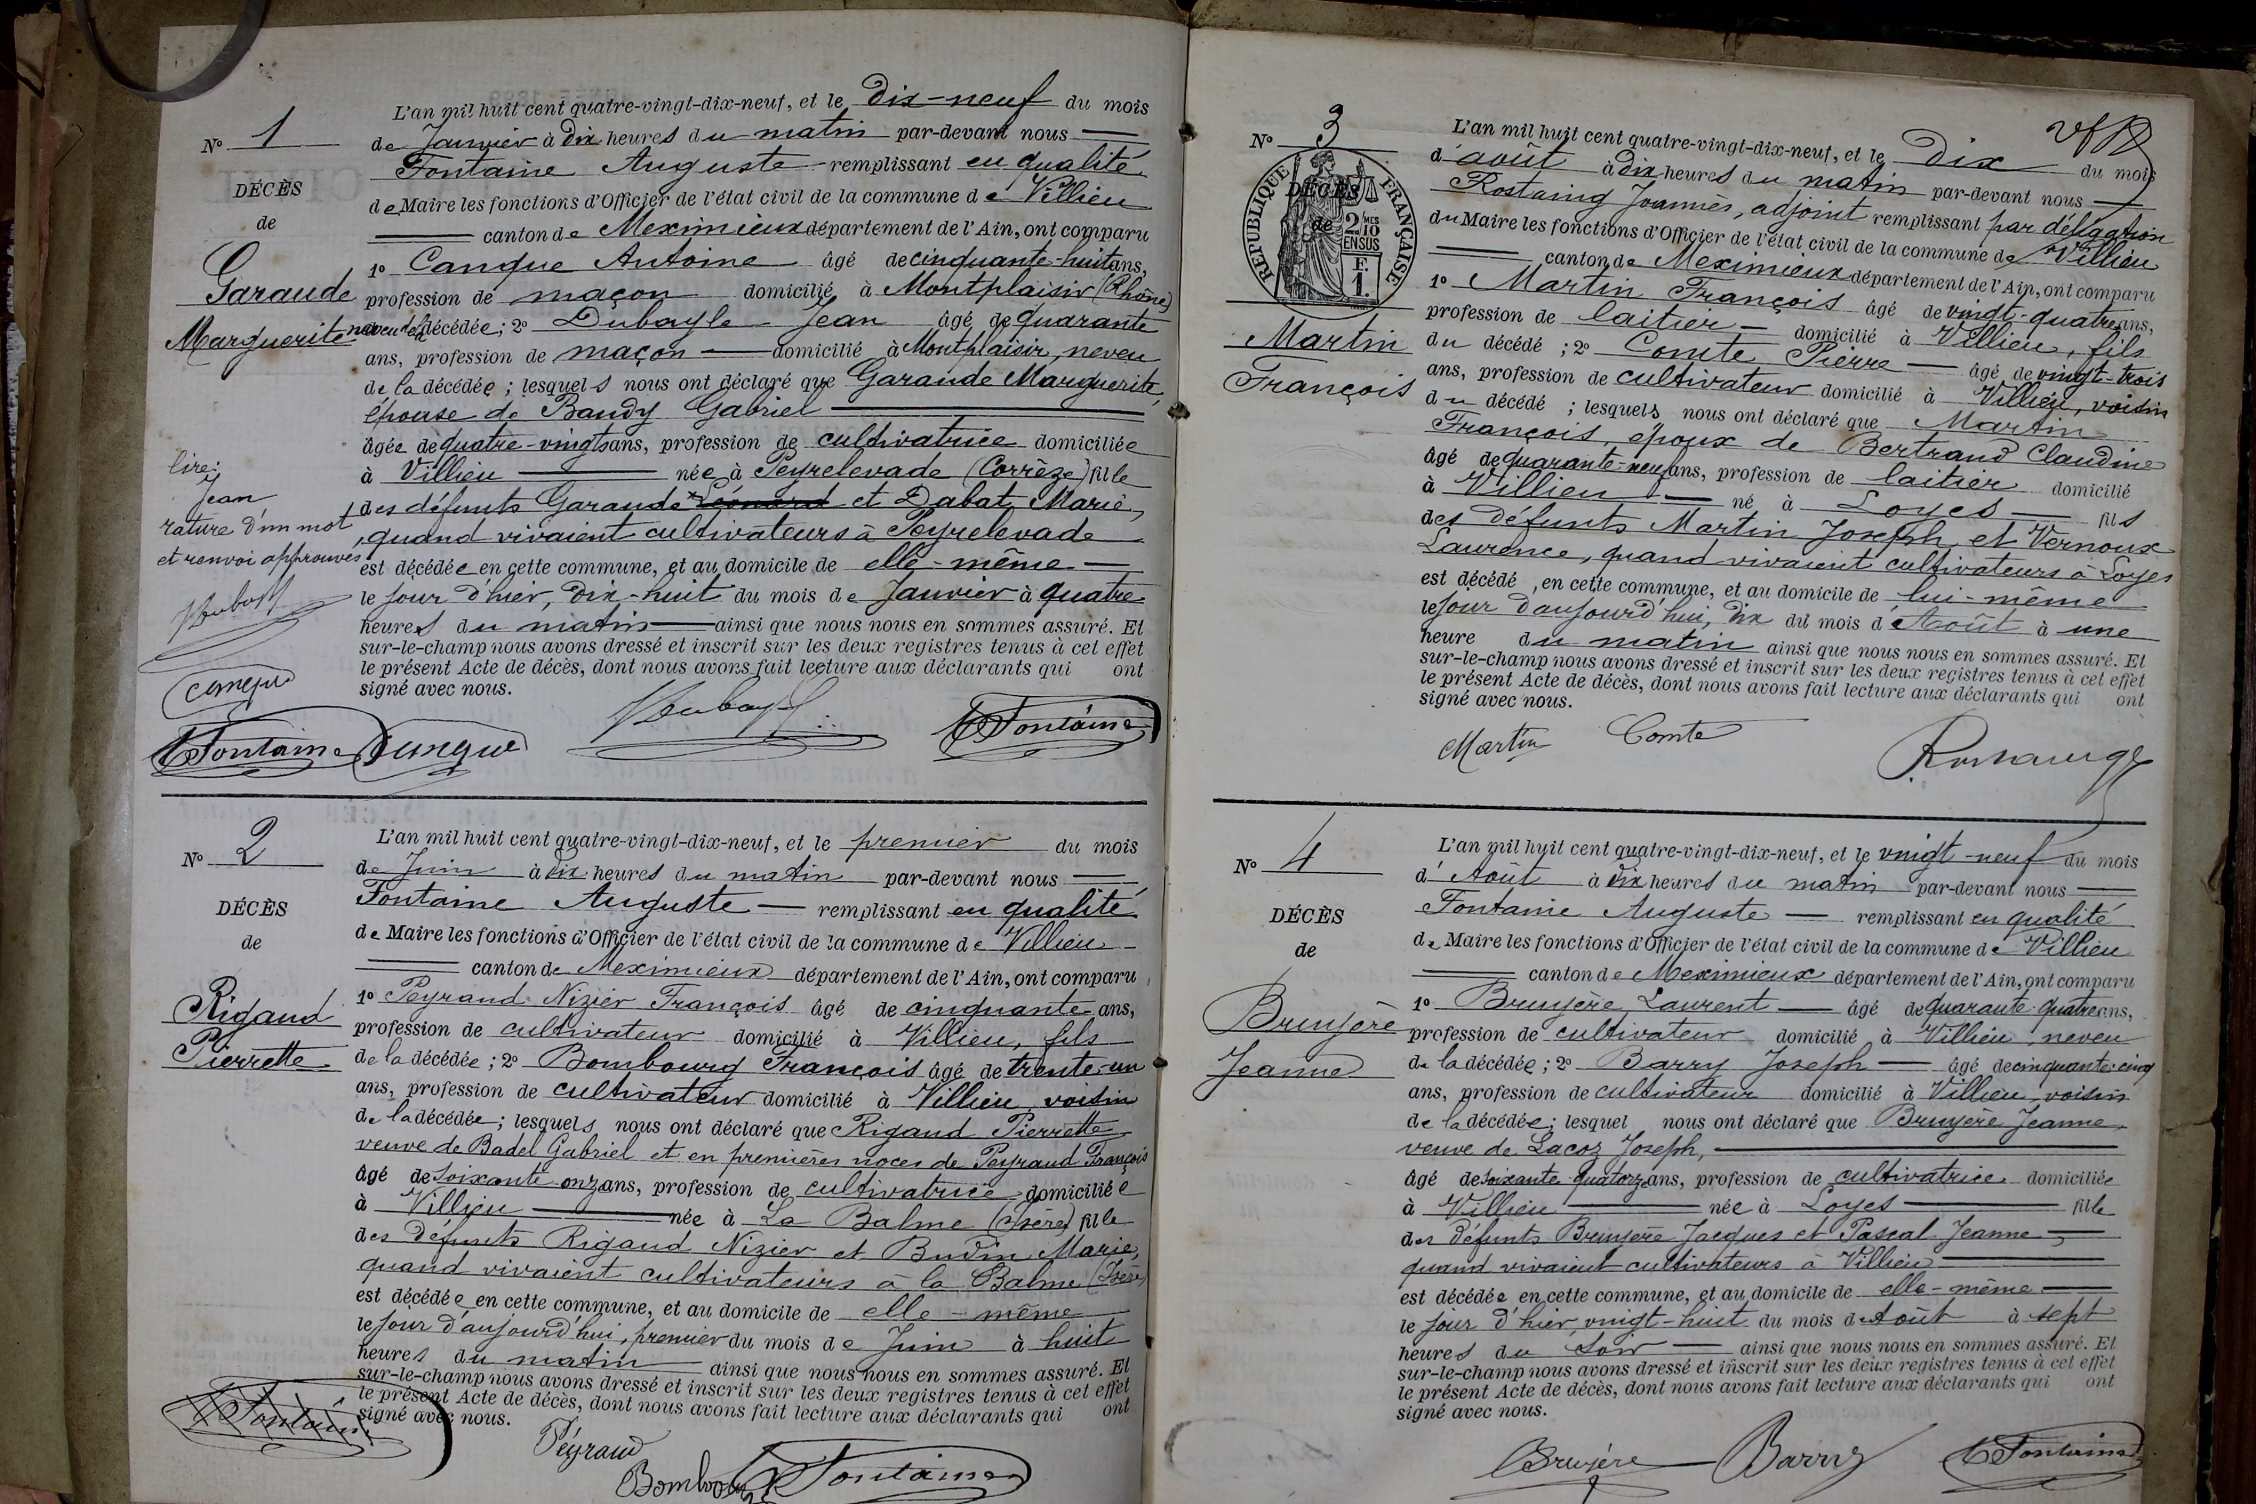 N° 1
DÉCÈS
de
Garaude
Marguerite
lire:
Jean
rature d'un mot
et renvoi approuvés
Dubayle
Canque
Fontaine
L'an mil huit cent quatre-vingt-dix-neuf, et le dix-neuf du mois
de Janvier à dix heures du matin par-devant nous
Fontaine Auguste remplissant en qualité
de Maire les fonctions d'Officier de l'état civil de la commune de Villieu
canton de Meximieux département de l'Ain, ont comparu
1° Canque Antoine âgé de cinquante-huit ans,
profession de maçon domicilié à Montplaisir (Rhône)
neveu de la décédée; 2° Dubayle Jean âgé de quarante
ans, profession de maçon domicilié à Montplaisir, neveu
de la décédée; lesquels nous ont déclaré que Garaude Marguerite,
épouse de Bandy Gabriel
âgée de quatre-vingts ans, profession de cultivatrice domiciliée
à Villieu née à Peyrelevade (Corrèze) fille
des défunts Garaude Léonard et Dabat Marie,
quand vivaient cultivateurs à Peyrelevade
est décédée en cette commune, et au domicile de elle-même
le jour d'hier, dix-huit du mois de Janvier à quatre
heures du matin ainsi que nous nous en sommes assuré. Et
sur-le-champ nous avons dressé et inscrit sur les deux registres tenus à cet effet
le présent Acte de décès, dont nous avons fait lecture aux déclarants qui ont
signé avec nous.
Canque Dubayle Fontaine
N° 2
DÉCÈS
de
Rigaud
Pierrette
L'an mil huit cent quatre-vingt-dix-neuf, et le premier du mois
de Juin à dix heures du matin par-devant nous
Fontaine Auguste remplissant en qualité
de Maire les fonctions d'Officier de l'état civil de la commune de Villieu
canton de Meximieux département de l'Ain, ont comparu
1° Peyraud Nizier François âgé de cinquante ans,
profession de cultivateur domicilié à Villieu, fils
de la décédée; 2° Bombourg François âgé de trente-un
ans, profession de cultivateur domicilié à Villieu, voisin
de la décédée; lesquels nous ont déclaré que Rigaud Pierrette
veuve de Badel Gabriel et en premières noces de Peyraud François
âgé de soixante-onz ans, profession de cultivatrice domiciliée
à Villieu née à La Balme (Isère) fille
des défunts Rigaud Nizier et Budin Marie,
quand vivaient cultivateurs à la Balme (Isère)
est décédée en cette commune, et au domicile de elle-même
le jour d'aujourd'hui, premier du mois de Juin à huit
heures du matin ainsi que nous nous en sommes assuré. Et
sur-le-champ nous avons dressé et inscrit sur les deux registres tenus à cet effet
le présent Acte de décès, dont nous avons fait lecture aux déclarants qui ont
signé avec nous.
Fontaine
Peyraud
Bombourg Fontaine
N° 3
DÉCÈS
de
RÉPUBLIQUE FRANÇAISE
2 MES
10
EN SUS
F.
1.
Martin
François
L'an mil huit cent quatre-vingt-dix-neuf, et le dix du mois
d'août à dix heures du matin par-devant nous
Rostaing Joannes, adjoint remplissant par délégation
du Maire les fonctions d'Officier de l'état civil de la commune de Villieu
canton de Meximieux département de l'Ain, ont comparu
1° Martin François âgé de vingt-quatre ans,
profession de laitier domicilié à Villieu, fils
du décédé; 2° Comte Pierre âgé de vingt-trois
ans, profession de cultivateur domicilié à Villieu, voisin
du décédé; lesquels nous ont déclaré que Martin
François, époux de Bertrand Claudine
âgé de quarante-neuf ans, profession de laitier domicilié
à Villieu né à Loyes fils
des défunts Martin Joseph et Vernoux
Laurence, quand vivaient cultivateurs à Loyes
est décédé, en cette commune, et au domicile de lui-même
le jour d'aujourd'hui, dix du mois d'Août à une
heure du matin ainsi que nous nous en sommes assuré. Et
sur-le-champ nous avons dressé et inscrit sur les deux registres tenus à cet effet
le présent Acte de décès, dont nous avons fait lecture aux déclarants qui ont
signé avec nous.
Martin Comte Rostaing
N° 4
DÉCÈS
de
Bruyère
Jeanne
L'an mil huit cent quatre-vingt-dix-neuf, et le vingt-neuf du mois
d'Août à dix heures du matin par-devant nous
Fontaine Auguste remplissant en qualité
de Maire les fonctions d'Officier de l'état civil de la commune de Villieu
canton de Meximieux département de l'Ain, ont comparu
1° Bruyère Laurent âgé de quarante-quatre ans,
profession de cultivateur domicilié à Villieu, neveu
de la décédée; 2° Barry Joseph âgé de cinquante-cinq
ans, profession de cultivateur domicilié à Villieu, voisin
de la décédée; lesquel nous ont déclaré que Bruyère Jeanne,
veuve de Lacoz Joseph,
âgé de soixante-quatorze ans, profession de cultivatrice domiciliée
à Villieu née à Loyes fille
des défunts Bruyère Jacques et Pascal Jeanne,
quand vivaient cultivateurs à Villieu
est décédée en cette commune, et au domicile de elle-même
le jour d'hier, vingt-huit du mois d'Août à sept
heures du soir ainsi que nous nous en sommes assuré. Et
sur-le-champ nous avons dressé et inscrit sur les deux registres tenus à cet effet
le présent Acte de décès, dont nous avons fait lecture aux déclarants qui ont
signé avec nous.
Bruyère Barry Fontaine